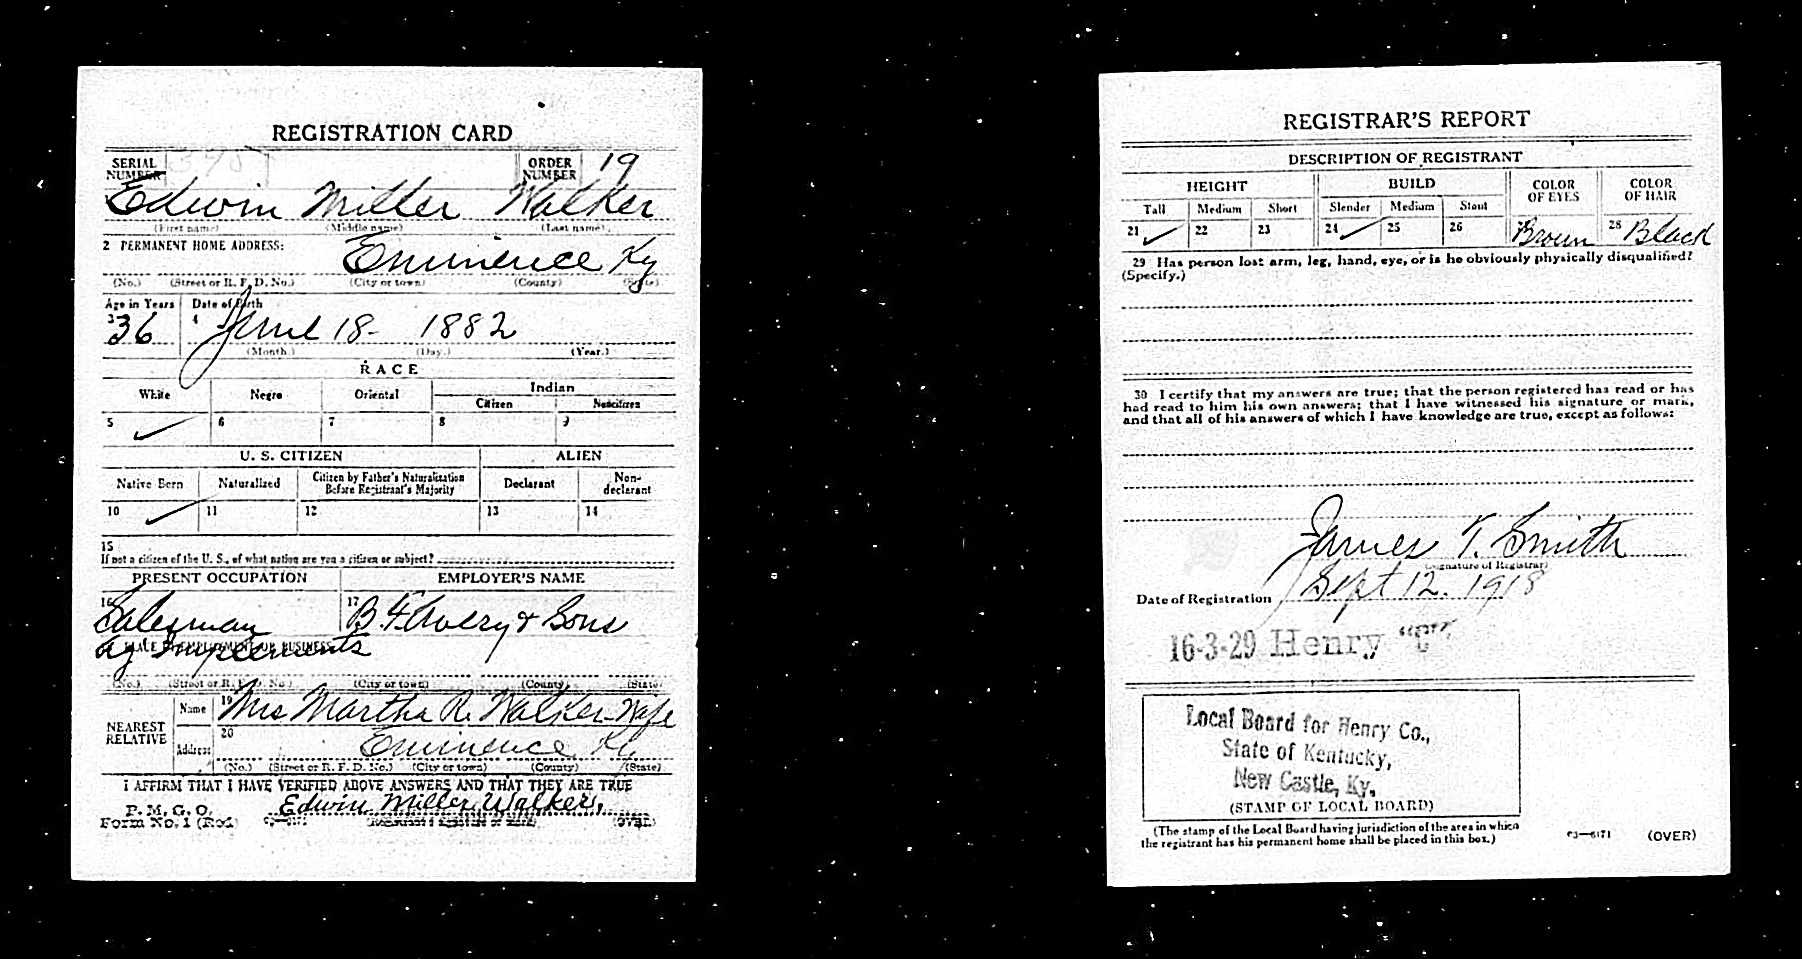 REGISTRATION CARD
SERIAL NUMBER
ORDER NUMBER 19
Edwin Miller Walker
(First name) (Middle name) (Last name)
2 PERMANENT HOME ADDRESS:
Eminence Ky
(No.) (Street or R. F. D. No.) (City or town) (County) (State)
Age in Years Date of Birth
3 36 4 June 18 - 1882
(Month.) (Day.) (Year.)
RACE
White Negro Oriental Indian
Citizen Noncitizen
5 ✓ 6 7 8 9
U. S. CITIZEN ALIEN
Native Born Naturalized Citizen by Father's Naturalization Before Registrant's Majority Declarant Non-declarant
10 ✓ 11 12 13 14
15
If not a citizen of the U. S., of what nation are you a citizen or subject?
PRESENT OCCUPATION EMPLOYER'S NAME
16 Salesman 17 B. F. Avery & Sons
Ag Implements
PLACE OF EMPLOYMENT OR BUSINESS
(No.) (Street or R. F. D. No.) (City or town) (County) (State)
NEAREST RELATIVE
Name 19 Mrs Martha R. Walker - Wife
Address 20 Eminence Ky
(No.) (Street or R. F. D. No.) (City or town) (County) (State)
I AFFIRM THAT I HAVE VERIFIED ABOVE ANSWERS AND THAT THEY ARE TRUE
P. M. G. O.
Form No. 1 (Red) Edwin Miller Walker.
(Registrant's signature or mark) (OVER)
REGISTRAR'S REPORT
DESCRIPTION OF REGISTRANT
HEIGHT BUILD COLOR OF EYES COLOR OF HAIR
Tall Medium Short Slender Medium Stout
21 ✓ 22 23 24 ✓ 25 26 27 Brown 28 Black
29 Has person lost arm, leg, hand, eye, or is he obviously physically disqualified?
(Specify.)
30 I certify that my answers are true; that the person registered has read or has
had read to him his own answers; that I have witnessed his signature or mark,
and that all of his answers of which I have knowledge are true, except as follows:
James T. Smith
(Signature of Registrar)
Date of Registration Sept 12. 1918
16-3-29 Henry "C"
Local Board for Henry Co.,
State of Kentucky,
New Castle, Ky.
(STAMP OF LOCAL BOARD)
(The stamp of the Local Board having jurisdiction of the area in which
the registrant has his permanent home shall be placed in this box.)
03—6171 (OVER)